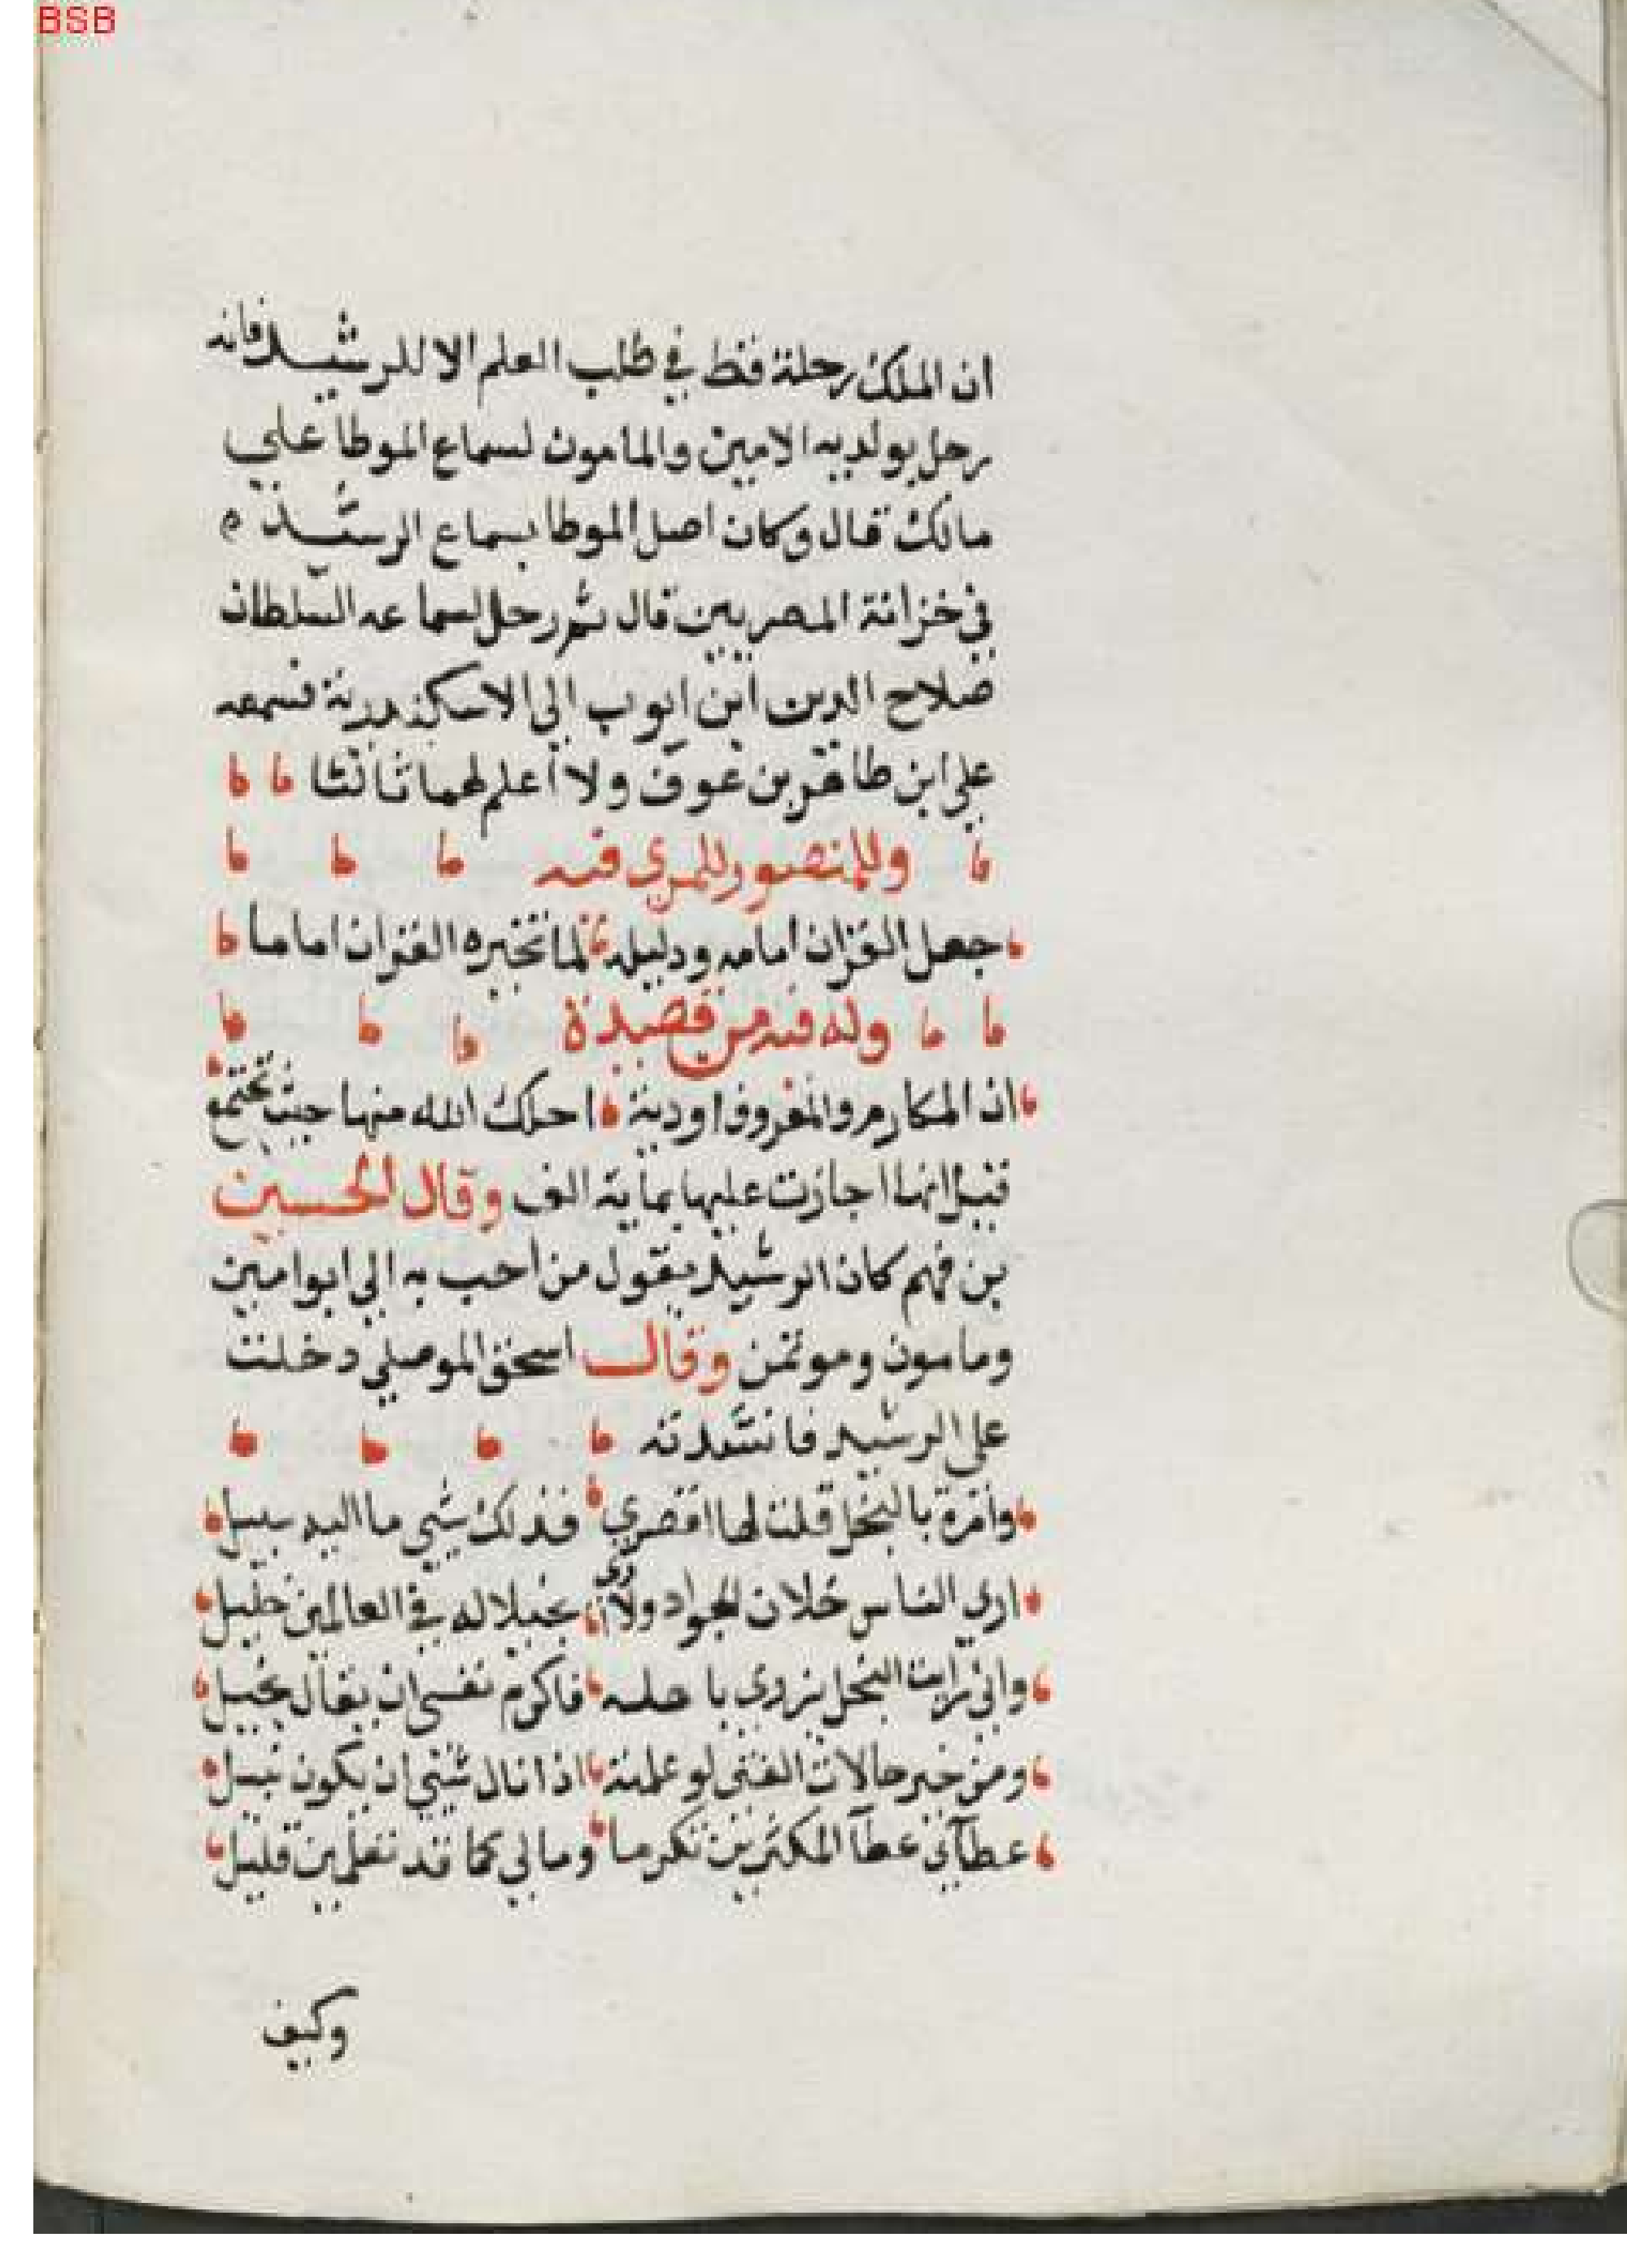 BSB
ان الملك رحلة قط في طلب العلم الا للرشيد فانه
رحل بولديه الامين والمامون لسماع الموطا علي
مالك قال وكان اصل الموطا بسماع الرشيد
في خزانة المصريين قال ثم رحل لسماعه السلطان
صلاح الدين ابن ايوب الى الاسكندرية فسمعه
على ابن طاهر بن عوف ولا اعلم لهما ثالثا
وللمنصور للمري فيه
جعل القران امامه ودليله لما تخيره القران اماما
وله فيه من قصيدة
ان المكارم والمعروف اودية احلك الله منها حيث تجتمع
قيل انها اجازت عليها بماية الف وقال الحسين
بن فهم كان الرشيد يقول من احب به الي ابوا مين
ومامون وموتمن وقال اسحق الموصلي دخلت
على الرشيد فانشدته
وامرة بالبخل قلت لها اقصري فذلك شيي ما اليه سبيل
اري الناس خلان الجواد ولا ارى بخيلا له في العالمين خليل
واني رايت البخل يزري باهله فاكرم نفسي ان يقال بخيل
ومن خير حالات الفتى لو علمته اذا نال شيي ان يكون نبيل
عطآئي عطآ المكثرين تكرما ومالي كما قد تعلمين قليل
وكيف